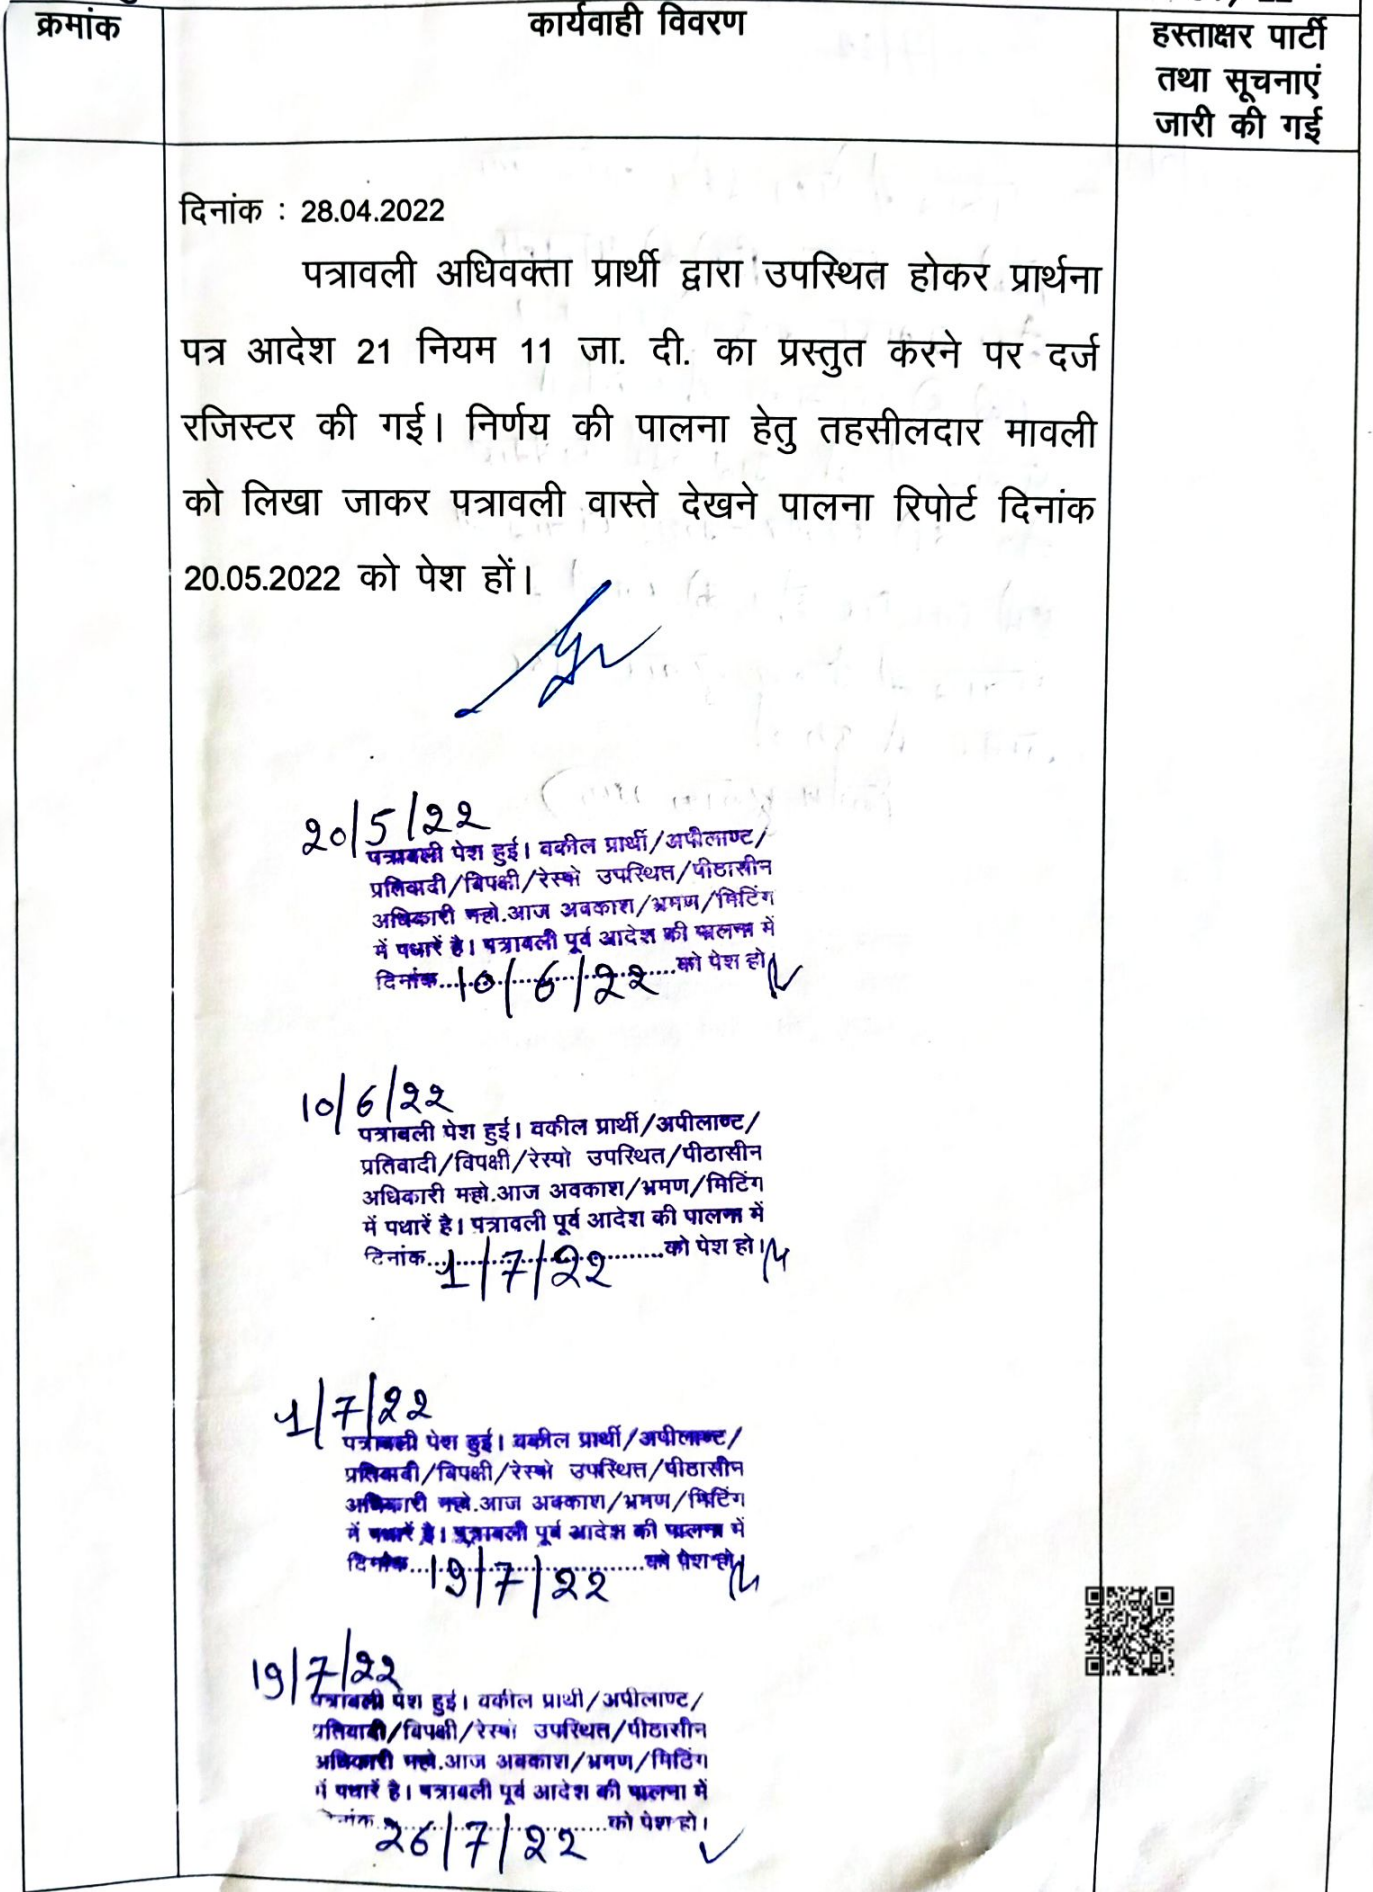 क्रमांक
कार्यवाही विवरण
हस्ताक्षर पार्टी
तथा सूचनाएं
जारी की गई
दिनांक : 28.04.2022
पत्रावली अधिवक्ता प्रार्थी द्वारा उपस्थित होकर प्रार्थना
पत्र आदेश 21 नियम 11 जा. दी. का प्रस्तुत करने पर दर्ज
रजिस्टर की गई। निर्णय की पालना हेतु तहसीलदार मावली
को लिखा जाकर पत्रावली वास्ते देखने पालना रिपोर्ट दिनांक
20.05.2022 को पेश हों।
20/5/22
पत्रावली पेश हुई। वकील प्रार्थी/अपीलाण्ट/
प्रतिवादी/विपक्षी/रेस्पो उपस्थित/पीठासीन
अधिकारी महो.आज अवकाश/भ्रमण/मिटिंग
में पधारें है। पत्रावली पूर्व आदेश की पालना में
दिनांक..........10/6/22..........को पेश हो।
10/6/22
पत्रावली पेश हुई। वकील प्रार्थी/अपीलाण्ट/
प्रतिवादी/विपक्षी/रेस्पो उपस्थित/पीठासीन
अधिकारी महो.आज अवकाश/भ्रमण/मिटिंग
में पधारें है। पत्रावली पूर्व आदेश की पालना में
दिनांक..........1/7/22..........को पेश हो।
1/7/22
पत्रावली पेश हुई। वकील प्रार्थी/अपीलाण्ट/
प्रतिवादी/विपक्षी/रेस्पो उपस्थित/पीठासीन
अधिकारी महो.आज अवकाश/भ्रमण/मिटिंग
में पधारें है। पत्रावली पूर्व आदेश की पालना में
दिनांक..........19/7/22..........को पेश हो।
19/7/22
पत्रावली पेश हुई। वकील प्रार्थी/अपीलाण्ट/
प्रतिवादी/विपक्षी/रेस्पो उपस्थित/पीठासीन
अधिकारी महो.आज अवकाश/भ्रमण/मिटिंग
में पधारें है। पत्रावली पूर्व आदेश की पालना में
दिनांक..........26/7/22..........को पेश हो।